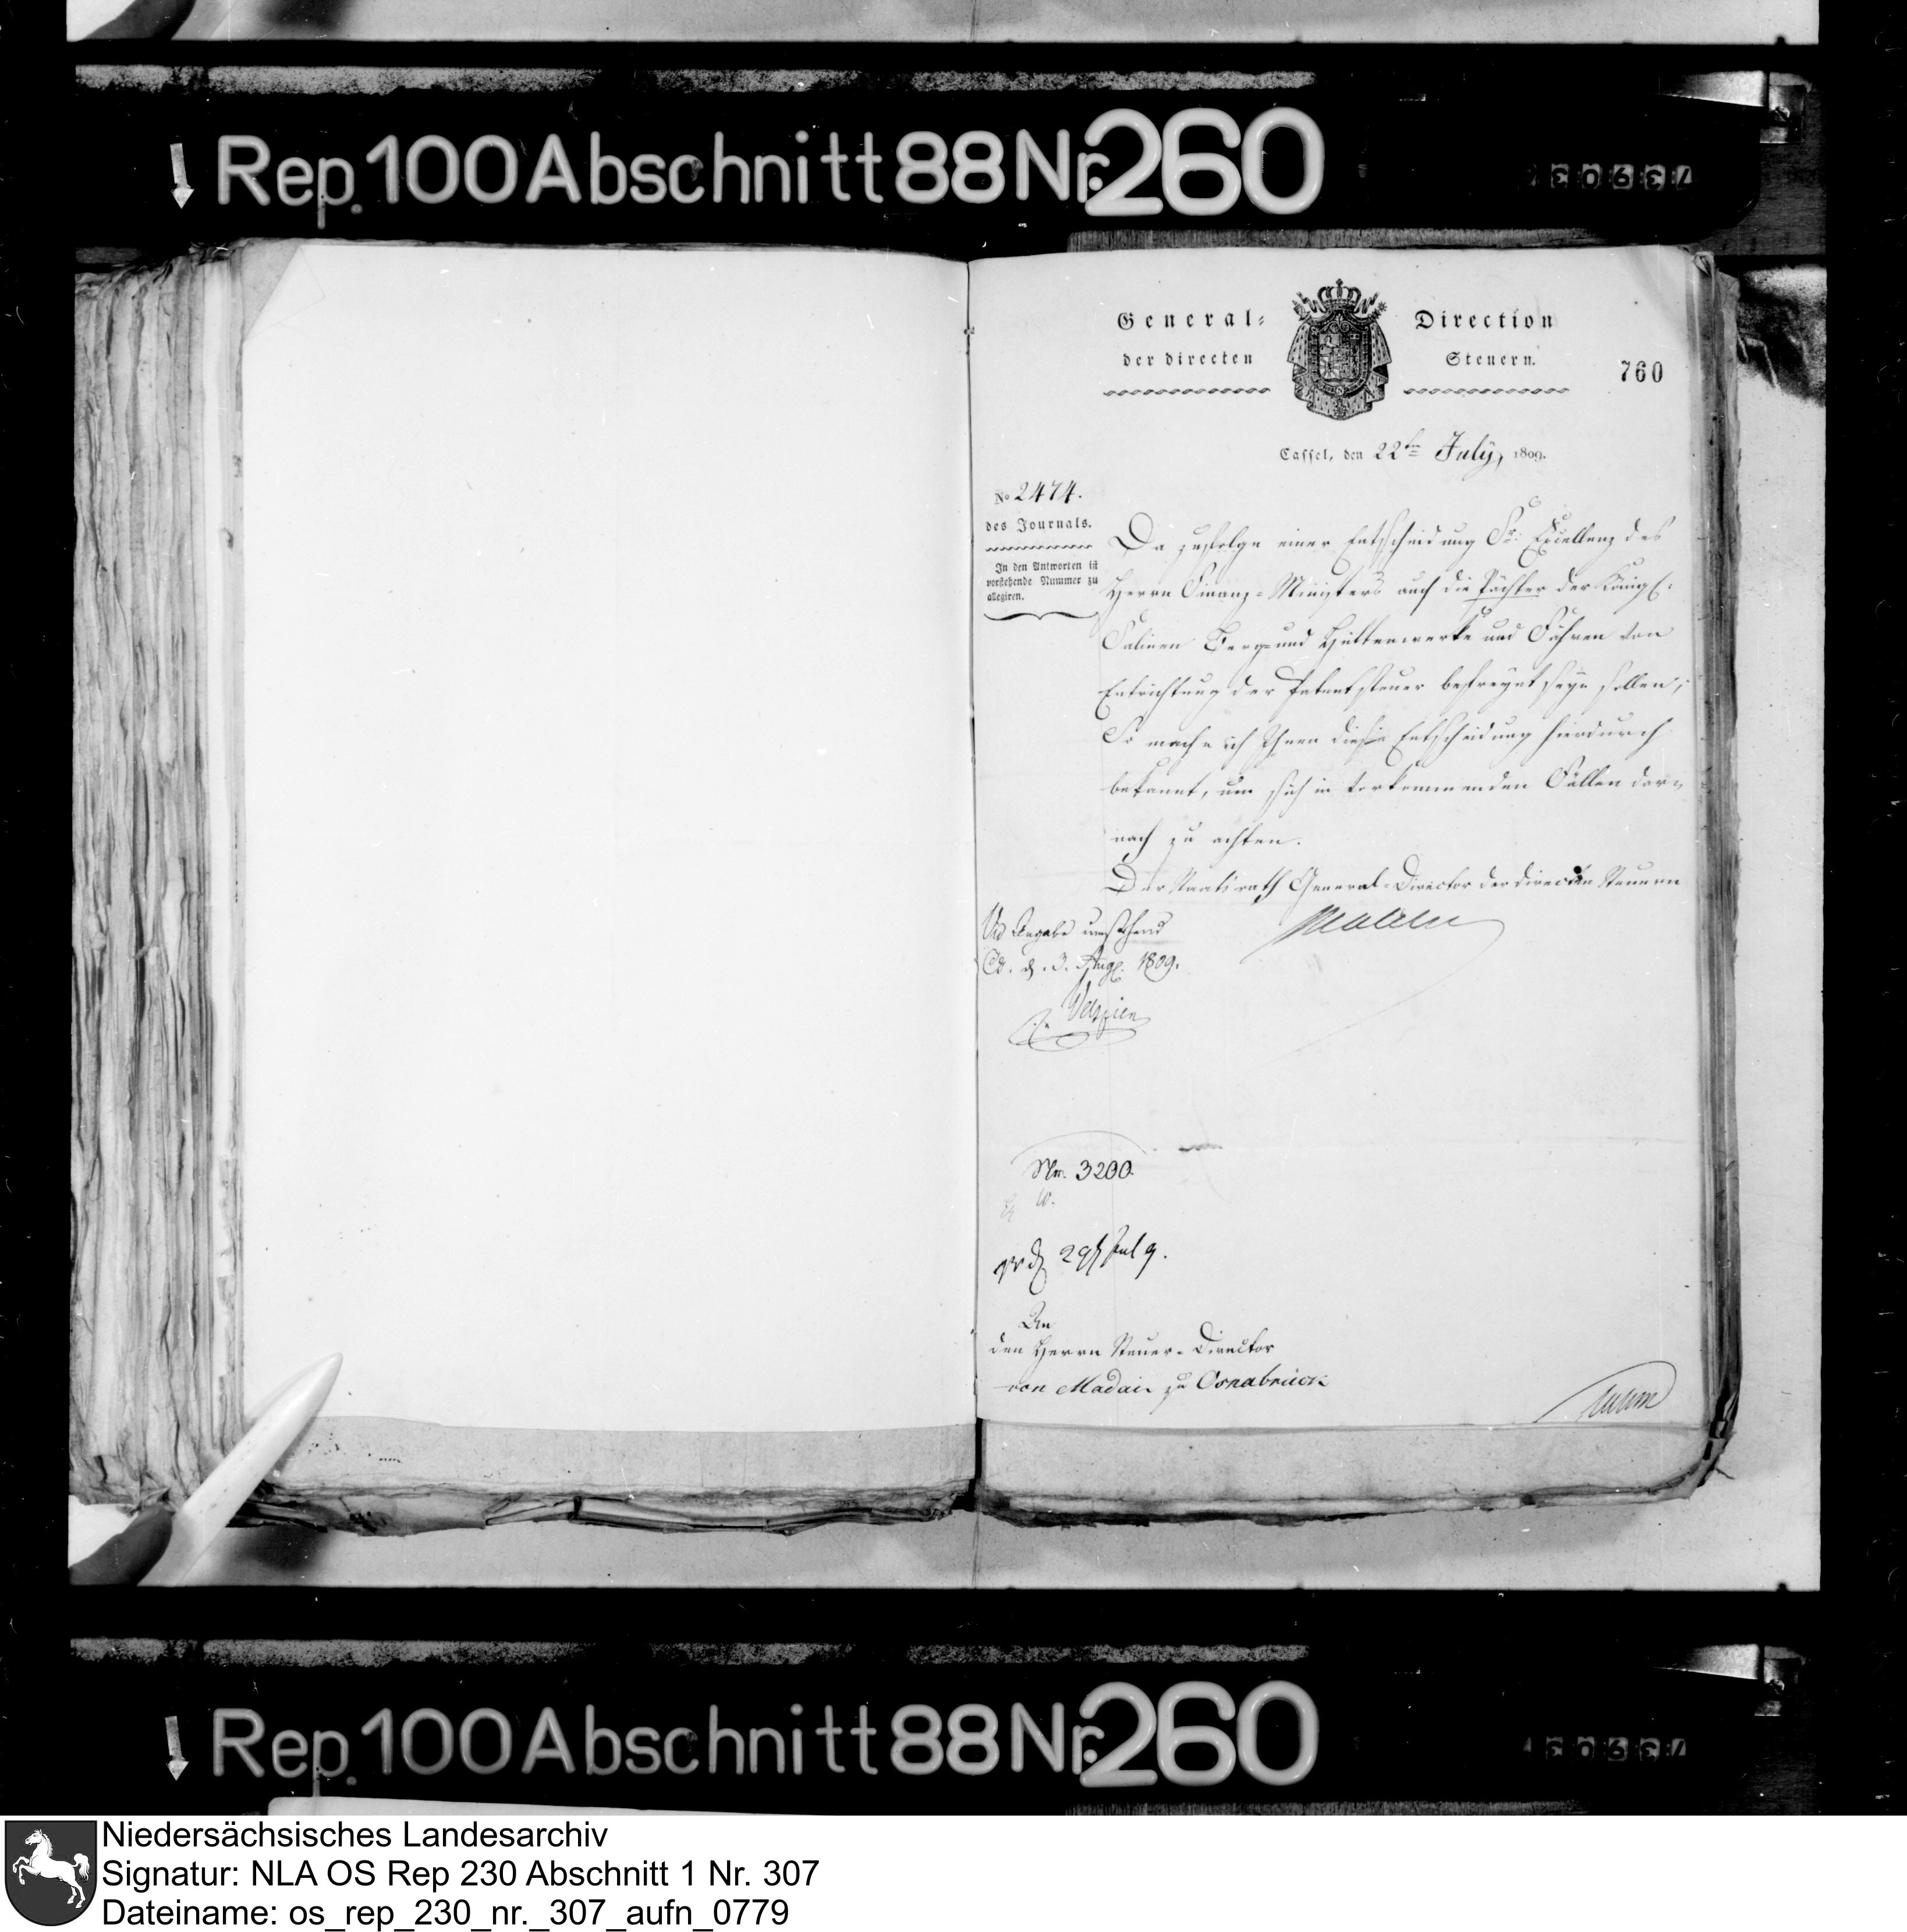 Rep. 100 Abschnitt 88 Nr. 260
General- Direction
der directen Steuern.
760
Cassel, den 22ten July, 1809.
No 2474.
des Journals.
In den Antworten ist
vorstehende Nummer zu
allegiren.
Da zufolge einer Entscheidung Sr. Excellenz des
Herrn Finanz-Ministers auch die Pächter der Königl.
Salinen Berg- und Hüttenwerke und Fähren von
Entrichtung der Patentsteuer befreyet seyn sollen;
So mache ich Ihnen diese Entscheidung hierdurch
bekannt, um sich in vorkommenden Fällen dar-
nach zu achten.
Der Staatsrath General-Director der directen Steuern
Malchus
1809.
Nr. 3200.
An
den Herrn Steuer-Director
von Madai zu Osnabrück
Rep. 100 Abschnitt 88 Nr. 260
Niedersächsisches Landesarchiv
Signatur: NLA OS Rep 230 Abschnitt 1 Nr. 307
Dateiname: os_rep_230_nr._307_aufn_0779